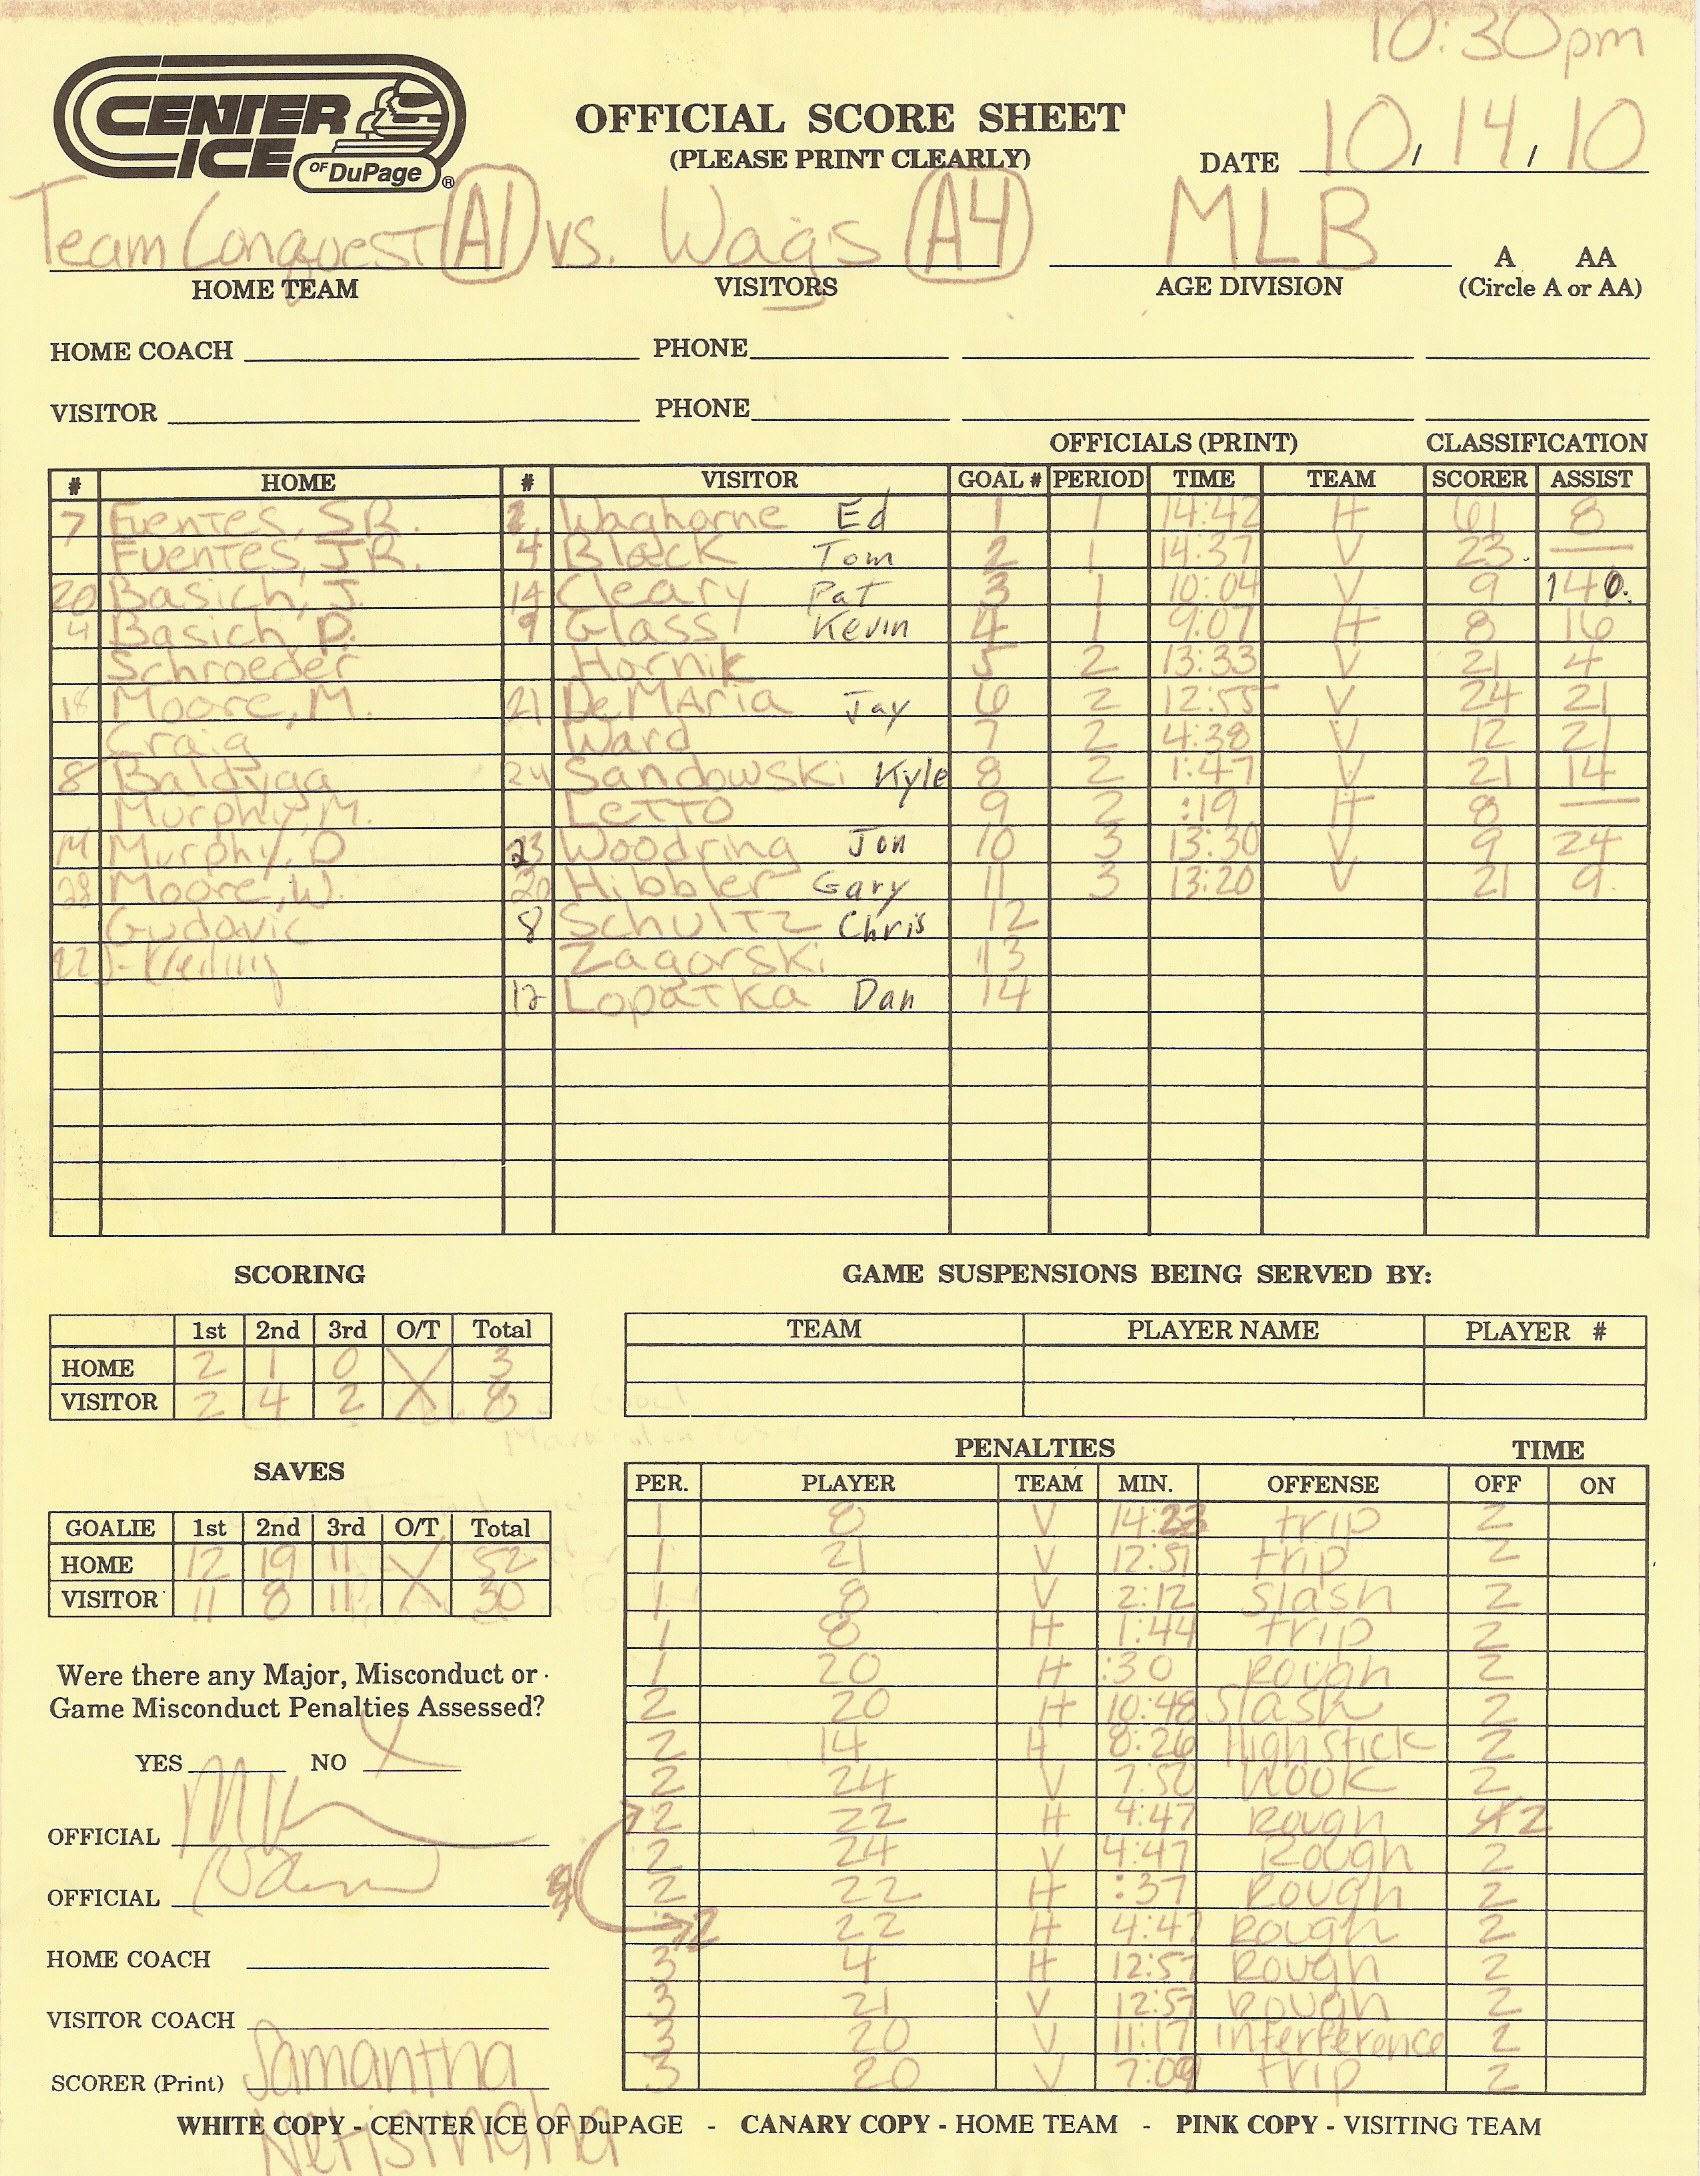 10:30pm
CENTER ICE OF DuPage ®
OFFICIAL SCORE SHEET
(PLEASE PRINT CLEARLY)
DATE 10, 14, 10
Team Conquest A1 vs. Wag's A4 MLB A AA
HOME TEAM VISITORS AGE DIVISION (Circle A or AA)
HOME COACH PHONE
VISITOR PHONE
OFFICIALS (PRINT) CLASSIFICATION
# HOME # VISITOR GOAL # PERIOD TIME TEAM SCORER ASSIST
7 Fuentes, SR. 2 Waghorne Ed 1 1 14:42 H 61 8
Fuentes, JR. 4 Black Tom 2 1 14:37 V 23 —
20 Basich, J. 14 Cleary Pat 3 1 10:04 V 9 14
4 Basich, P. 9 Glass Kevin 4 1 9:07 H 8 16
Schroeder Hornik 5 2 13:33 V 21 4
18 Moore, M. 21 DeMaria Jay 6 2 12:55 V 24 21
Craig Ward 7 2 4:38 V 12 21
8 Baldyga 24 Sandowski Kyle 8 2 1:47 V 21 14
Murphy, M. Letto 9 2 :19 H 8 —
14 Murphy, D 23 Woodring Jon 10 3 13:30 V 9 24
28 Moore, W. 20 Hibbler Gary 11 3 13:20 V 21 9
Gudavic 8 Schultz Chris 12
22 Zagorski 13
12 Lopatka Dan 14
SCORING GAME SUSPENSIONS BEING SERVED BY:
1st 2nd 3rd O/T Total TEAM PLAYER NAME PLAYER #
HOME 2 1 0 X 3
VISITOR 2 4 2 X 8
PENALTIES TIME
SAVES
PER. PLAYER TEAM MIN. OFFENSE OFF ON
GOALIE 1st 2nd 3rd O/T Total
HOME 12 19 11 X 52
VISITOR 11 8 11 X 30
1 8 V 14:23 trip 2
1 21 V 12:51 trip 2
1 8 V 2:12 slash 2
1 8 H 1:44 trip 2
1 20 H :30 Rough 2
2 20 H 10:48 slash 2
2 14 H 8:26 High stick 2
2 24 V 7:50 Hook 2
2 22 H 4:47 Rough 2
2 24 V 4:47 Rough 2
2 22 H :37 Rough 2
2 22 H 4:47 Rough 2
3 4 H 12:57 Rough 2
3 21 V 12:57 Rough 2
3 20 V 11:17 interference 2
3 20 V 7:09 trip 2
Were there any Major, Misconduct or
Game Misconduct Penalties Assessed?
YES NO X
OFFICIAL
OFFICIAL
HOME COACH
VISITOR COACH
SCORER (Print) Samantha
WHITE COPY - CENTER ICE OF DuPAGE - CANARY COPY - HOME TEAM - PINK COPY - VISITING TEAM